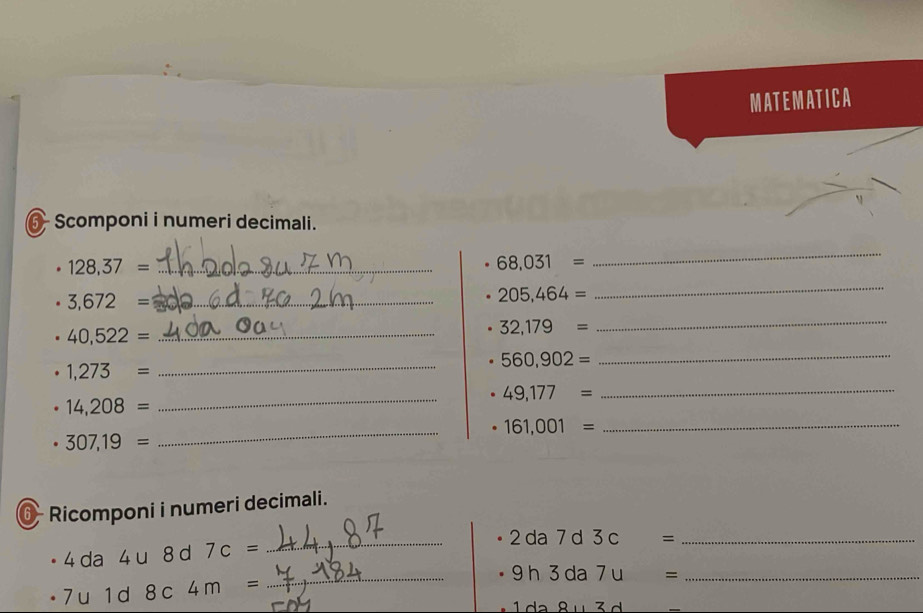 MATEMATICA
5 Scomponi i numeri decimali.
• 128,37 = 1h 2da 8u 7 m
• 3,672 = 6d 7c 2m
• 40,522 = 4da
• 1,273 =
• 14,208 =
• 307,19 =
• 68,031 =
• 205,464 =
• 32,179 =
• 560,902 =
• 49,177 =
• 161,001 =
6 Ricomponi i numeri decimali.
• 4 da 4 u 8 d 7 c = 44,87
• 7 u 1 d 8 c 4 m = 7,184
• 2 da 7 d 3 c =
• 9 h 3 da 7 u =
• 1 da 8 u 3 d =